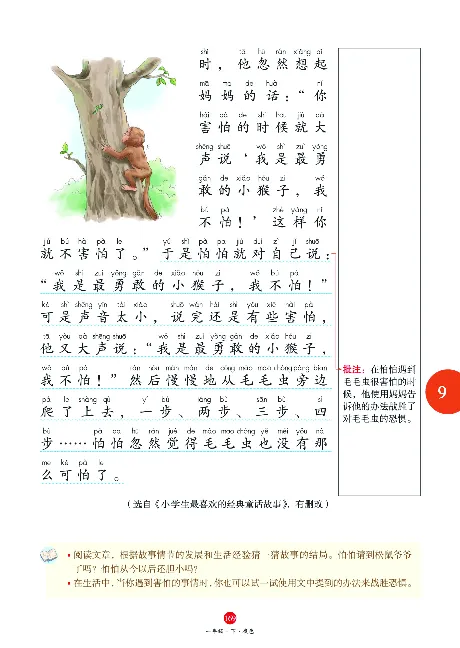 shí tā hū rán xiǎng qǐ
时，他忽然想起
mā ma de huà nǐ
妈妈的话：“你
hài pà de shí hou jiù dà
害怕的时候就大
shēng shuō wǒ shì zuì yǒng
声说‘我是最勇
gǎn de xiǎo hóu zi wǒ
敢的小猴子，我
bú pà zhè yàng nǐ
不怕！’这样你
jiù bú hài pà le yú shì pà pa jiù duì zì jǐ shuō
就不害怕了。”于是怕怕就对自己说：
wǒ shì zuì yǒng gǎn de xiǎo hóu zi wǒ bú pà
“我是最勇敢的小猴子，我不怕！”
kě shì shēng yīn tài xiǎo shuō wán hái shi yǒu xiē hài pà
可是声音太小，说完还是有些害怕，
tā yòu dà shēng shuō wǒ shì zuì yǒng gǎn de xiǎo hóu zi
他又大声说：“我是最勇敢的小猴子，
wǒ bú pà rán hòu màn màn de cóng máo mao chóng páng biān
我不怕！”然后慢慢地从毛毛虫旁边
pá le shàng qù yí bù liǎng bù sān bù sì
爬了上去，一步、两步、三步、四
bù pà pa hū rán jué de máo mao chóng yě méi yǒu nà
步……怕怕忽然觉得毛毛虫也没有那
me kě pà le
么可怕了。
（选自《小学生最喜欢的经典童话故事》，有删改）
批注：在怕怕遇到
毛毛虫很害怕的时
候，他使用妈妈告
诉他的办法战胜了
对毛毛虫的恐惧。
9
•阅读文章，根据故事情节的发展和生活经验猜一猜故事的结局。怕怕请到松鼠爷爷
了吗？怕怕从今以后还胆小吗？
•在生活中，当你遇到害怕的事情时，你也可以试一试使用文中提到的办法来战胜恐惧。
169